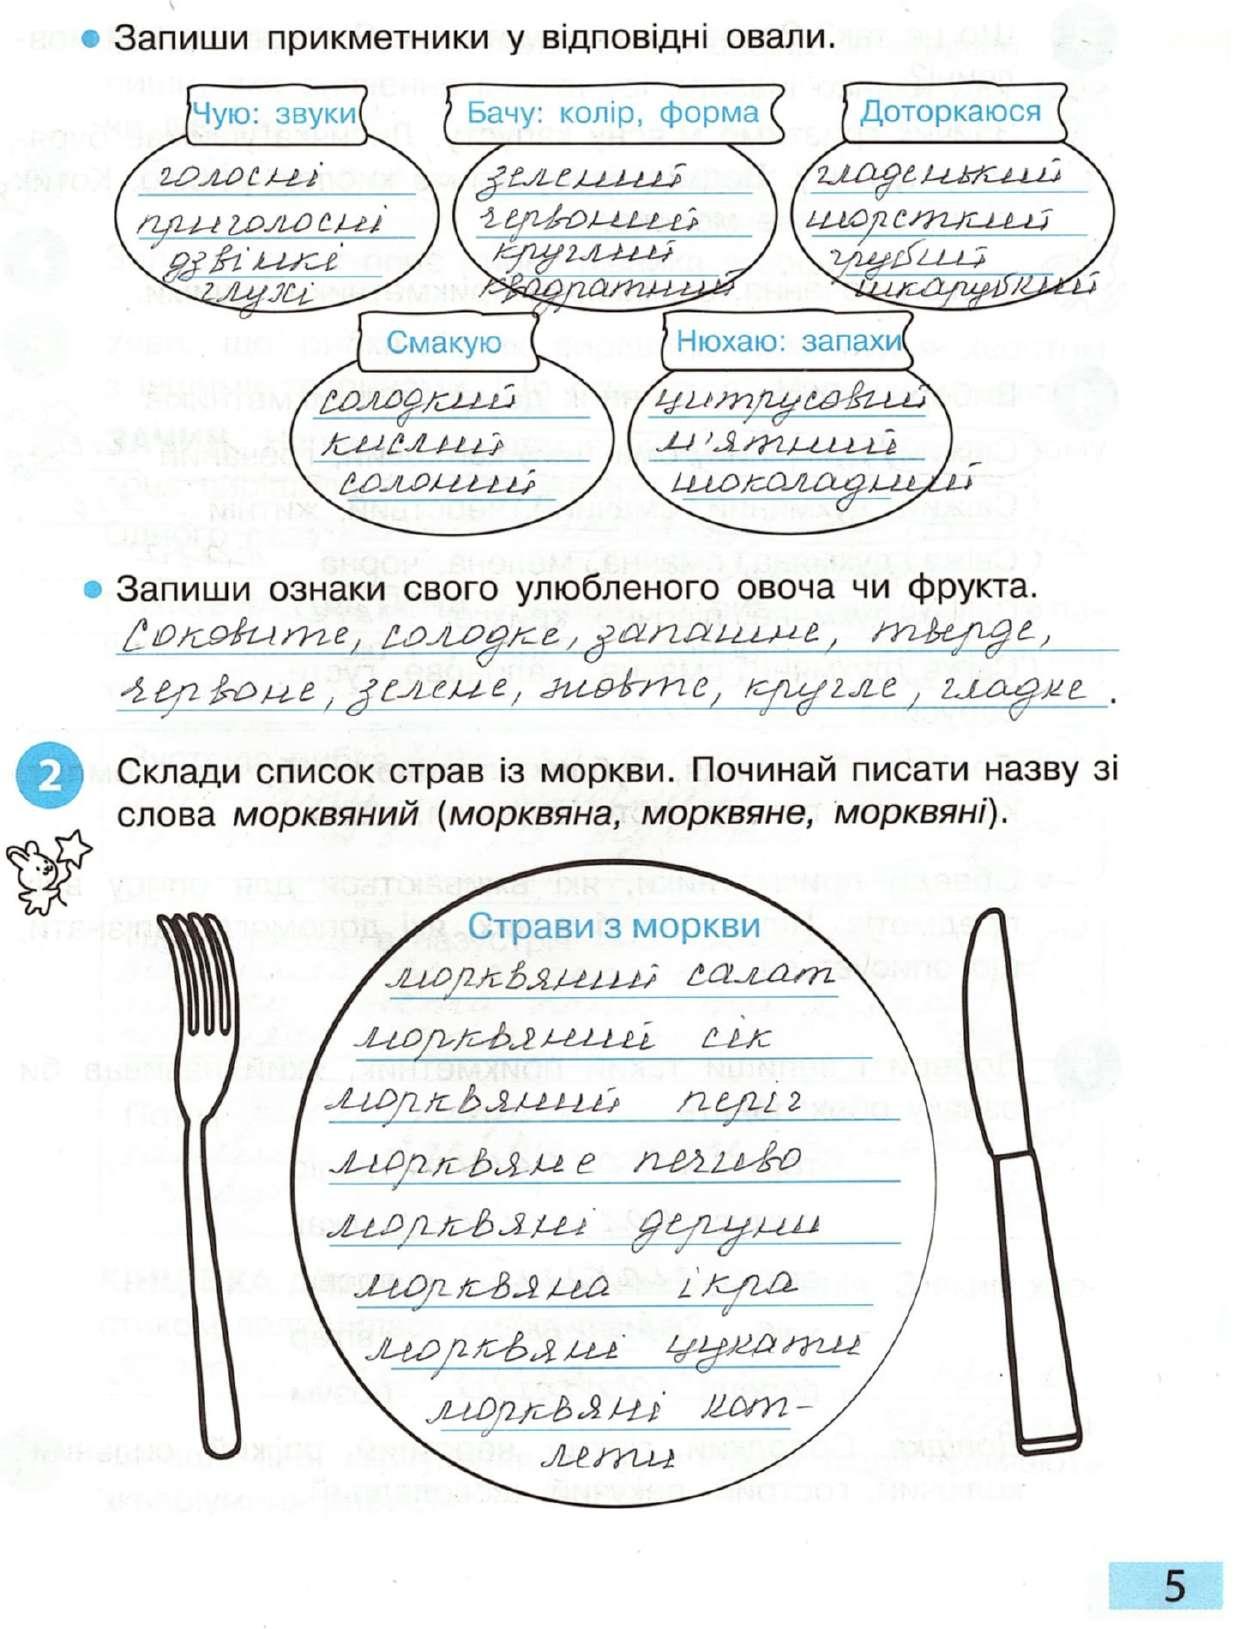 Запиши прикметники у відповідні овали.
Чую: звуки
голосні
приголосні
дзвінкі
глухі
Бачу: колір, форма
зелений
червоний
круглий
квадратний
Доторкаюся
гладенький
шорсткий
грубий
шкарубкий
Смакую
солодкий
кислий
солоний
Нюхаю: запахи
цитрусовий
м'ятний
шоколадний
Запиши ознаки свого улюбленого овоча чи фрукта.
Соковите, солодке, запашне, тверде,
червоне, зелене, жовте, кругле, гладке.
2 Склади список страв із моркви. Починай писати назву зі
слова морквяний (морквяна, морквяне, морквяні).
Страви з моркви
морквяний салат
морквяний сік
морквяний періг
морквяне печиво
морквяні деруни
морквяна ікра
морквяні цукати
морквяні кот-
лети
5